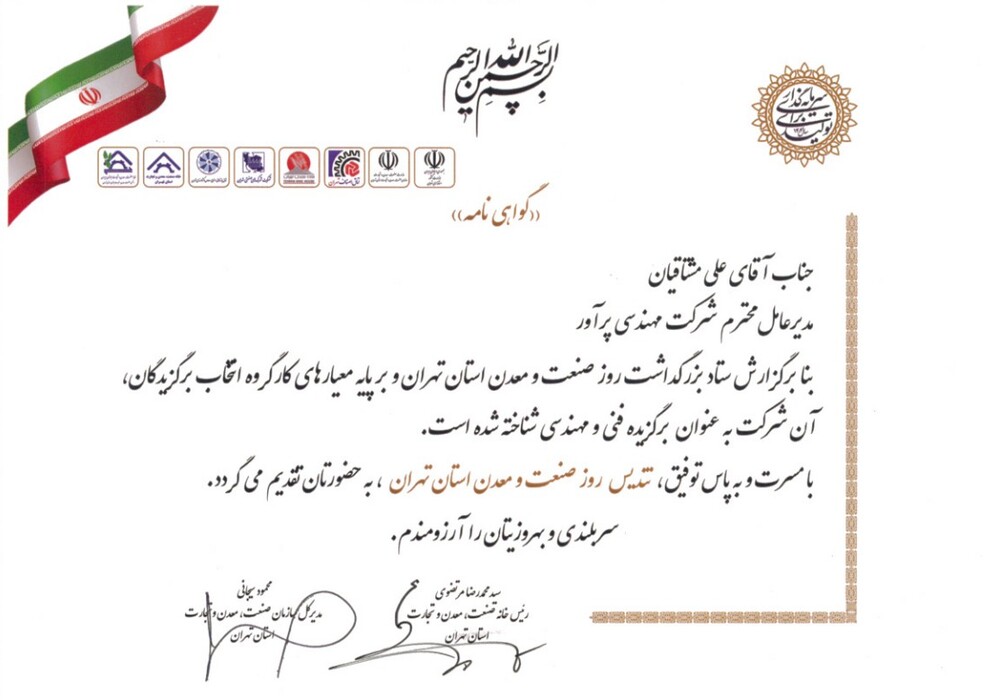 بسم الله الرحمن الرحیم
سرمایه‌گذاری
برای
تولید
اتاق اصناف تهران
((گواهی نامه))
جناب آقای علی مشتاقیان
مدیرعامل محترم شرکت مهندسی پرآور
بنا بر گزارش ستاد بزرگداشت روز صنعت و معدن استان تهران و بر پایه معیارهای کارگروه انتخاب برگزیدگان،
آن شرکت به عنوان برگزیده فنی و مهندسی شناخته شده است.
با مسرت و به پاس توفیق، تندیس روز صنعت و معدن استان تهران، به حضورتان تقدیم می گردد.
سربلندی و بهروزیتان را آرزومندم.
سید محمدرضا مرتضوی
رئیس خانه صنعت، معدن و تجارت
استان تهران
محمود سیجانی
مدیرکل سازمان صنعت، معدن و تجارت
استان تهران